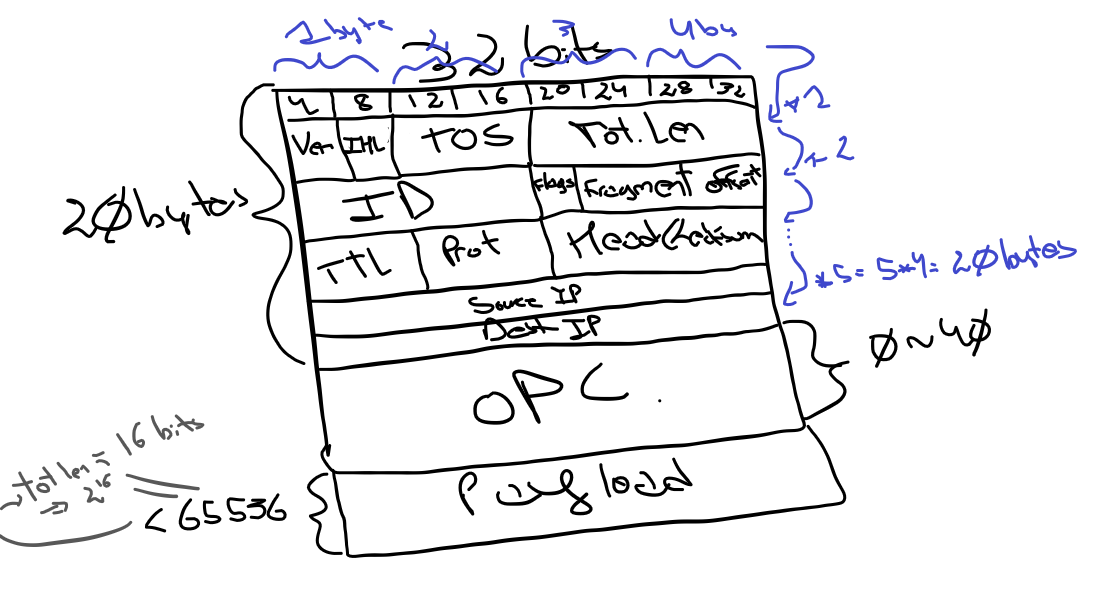 1 byte 2 3 4 by
32 bits
4 8 12 16 20 24 28 32
Ver IHL TOS Tot.Len
ID Flags Fragment offset
TTL Prot Head Checksum
Source IP
Dest IP
OPC.
Payload
20 bytes
*5 = 5*4 = 20 bytes
0 ~ 40
tot len = 16 bits
=> 2^16
< 65536